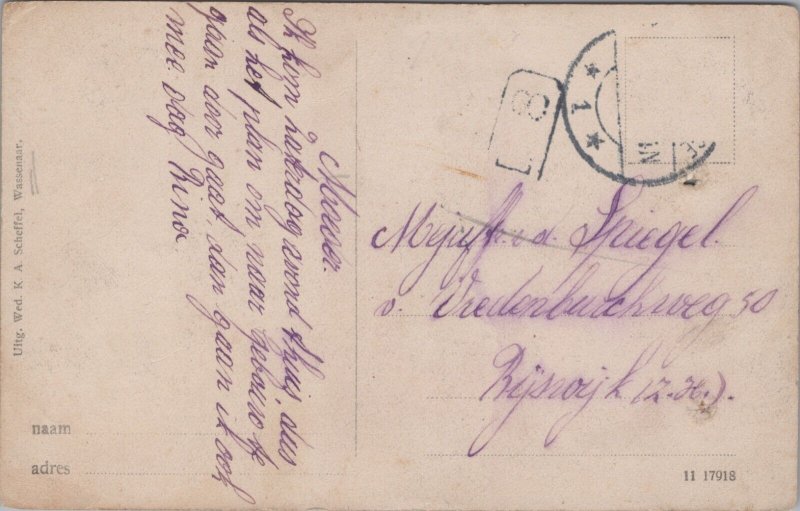 Ik kom zaterdag avond thuis, dus
als het plan om naar gebouw te
gaan door gaat, dan gaan ik ook
mee dag Rino.
Mejuff. v. d. Spiegel.
v. Vredenburchweg 50
Rijswijk (Z.H.).
L 8
1
Uitg. Wed. K A. Scheffel, Wassenaar.
naam
adres
11 17918